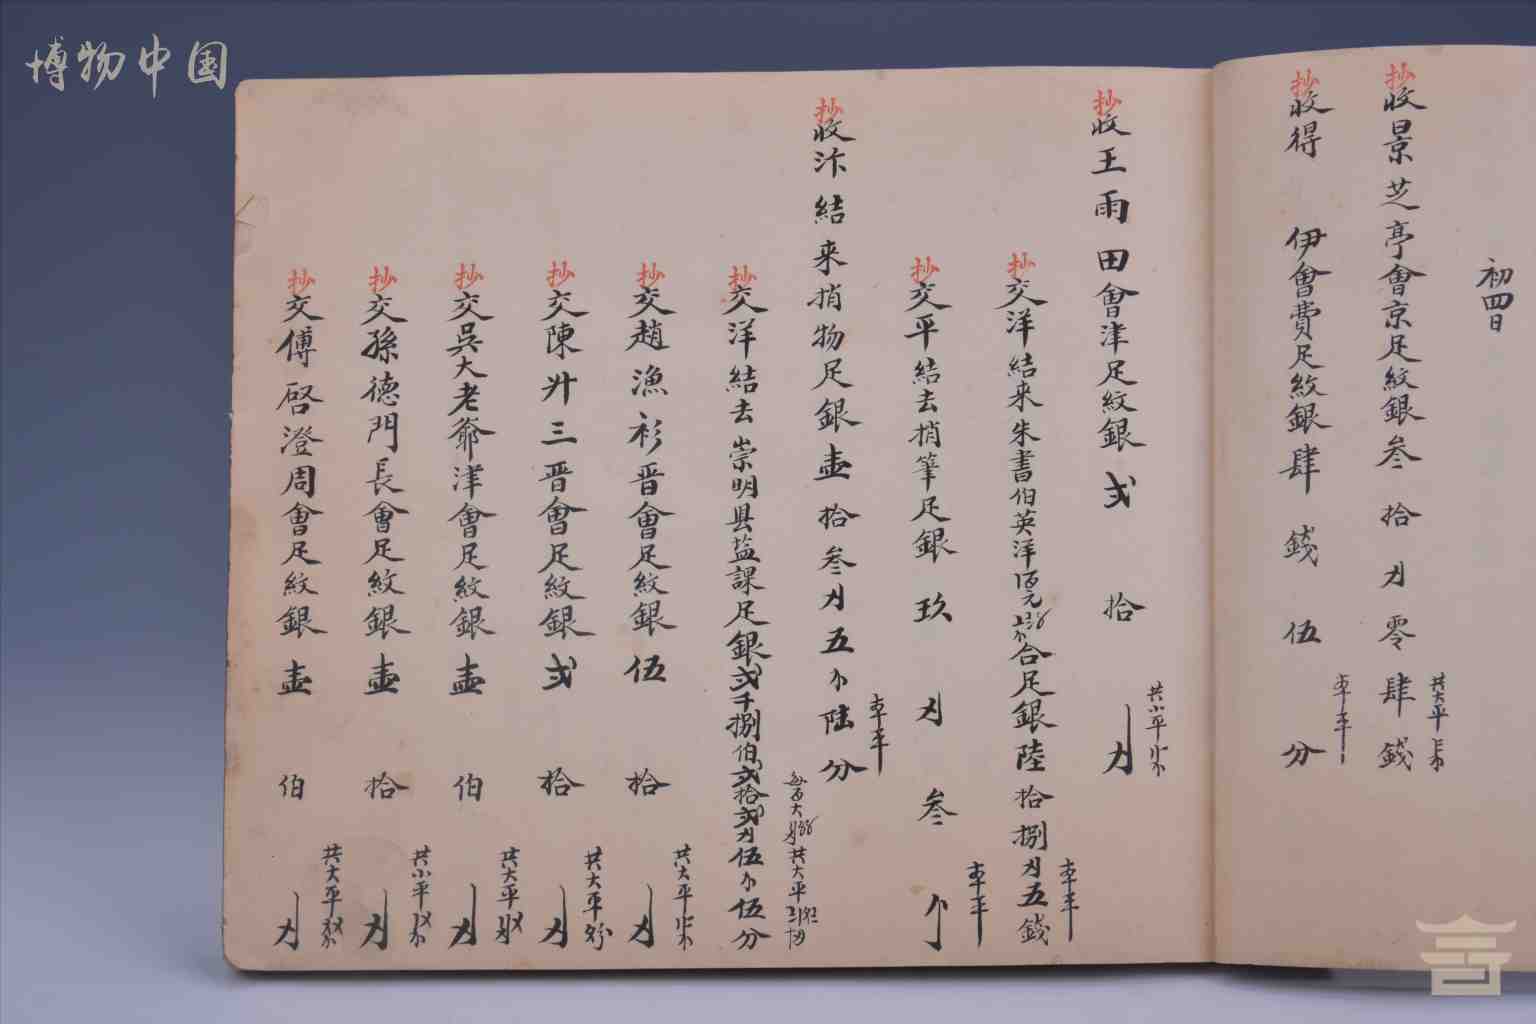 博物中国
初四日
抄收景芝亭會京足紋銀叁拾刄零肆錢
共大平
抄收得 伊會費足紋銀肆錢伍分
本平
抄收王雨田會津足紋銀弍拾刄
共小平
抄交洋結来朱書伯英洋 合足銀陸拾捌刄五錢
本平
抄交平結去捎筆足銀玖刄叁
本平
抄收汴結来捎物足銀壶拾叁刄五 陆分
本平
抄交洋結去崇明县盐課足銀弍千捌伯弍拾弍刄伍 伍分
每百大 共大平
抄交趙漁衫晋會足紋銀伍拾刄
共大平
抄交陳升三晋會足紋銀弍拾刄
共大平
抄交吳大老爺洋會足紋銀壶伯刄
共大平
抄交孫德門長會足紋銀壶拾刄
共小平
抄交傅啓澄周會足紋銀壶伯刄
共大平